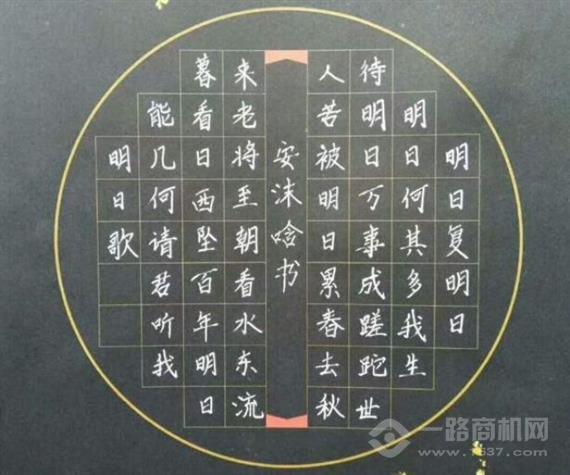 明日复明日
明日何其多我生
待明日万事成蹉跎世
人苦被明日累春去秋
安沫啥书
来老将至朝看水东流
暮看日西坠百年明日
能几何请君听我
明日歌
一路商机网
www.1637.com